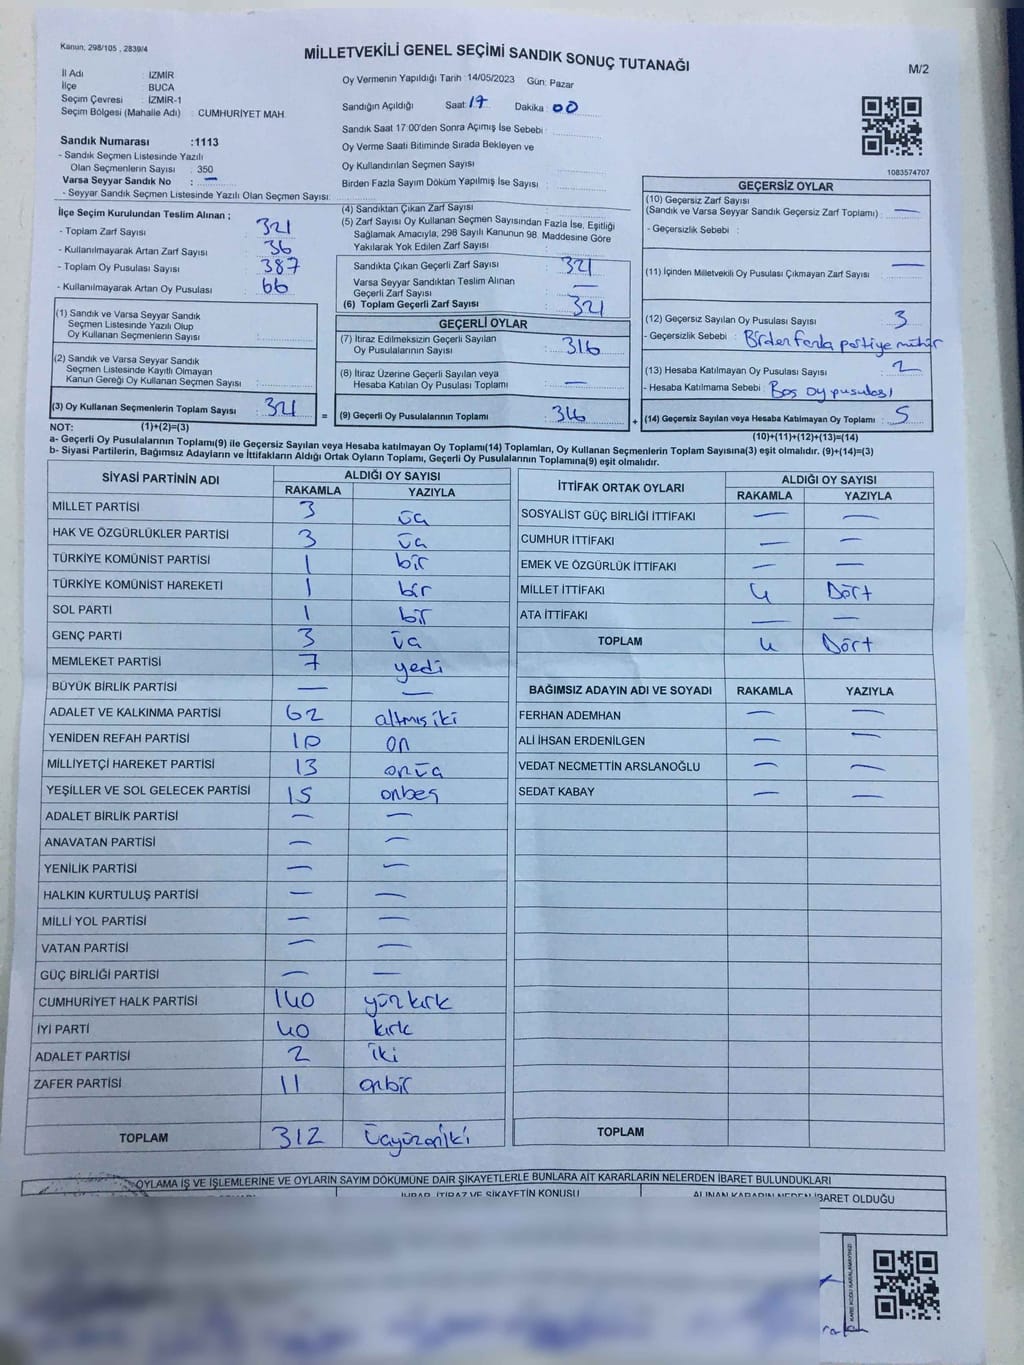 Kanun, 298/105 , 2839/4
MİLLETVEKİLİ GENEL SEÇİMİ SANDIK SONUÇ TUTANAĞI
M/2
İl Adı İZMİR
İlçe BUCA
Seçim Çevresi : İZMİR-1
Seçim Bölgesi (Mahalle Adı) : CUMHURİYET MAH.
Oy Vermenin Yapıldığı Tarih : 14/05/2023 Gün: Pazar
Sandığın Açıldığı Saat: 17 Dakika: 00
Sandık Saat 17:00'den Sonra Açımış İse Sebebi :
Oy Verme Saati Bitiminde Sırada Bekleyen ve
Oy Kullandırılan Seçmen Sayısı
Birden Fazla Sayım Döküm Yapılmış İse Sayısı :
1083574707
Sandık Numarası :1113
- Sandık Seçmen Listesinde Yazılı
Olan Seçmenlerin Sayısı : 350
Varsa Seyyar Sandık No : —
- Seyyar Sandık Seçmen Listesinde Yazılı Olan Seçmen Sayısı:
İlçe Seçim Kurulundan Teslim Alınan ;
- Toplam Zarf Sayısı : 321
- Kullanılmayarak Artan Zarf Sayısı : 36
- Toplam Oy Pusulası Sayısı : 387
- Kullanılmayarak Artan Oy Pusulası : 66
(1) Sandık ve Varsa Seyyar Sandık
Seçmen Listesinde Yazılı Olup
Oy Kullanan Seçmenlerin Sayısı :
(2) Sandık ve Varsa Seyyar Sandık
Seçmen Listesinde Kayıtlı Olmayan
Kanun Gereği Oy Kullanan Seçmen Sayısı :
(3) Oy Kullanan Seçmenlerin Toplam Sayısı : 321 =
(4) Sandıktan Çıkan Zarf Sayısı :
(5) Zarf Sayısı Oy Kullanan Seçmen Sayısından Fazla İse, Eşitliği
Sağlamak Amacıyla, 298 Sayılı Kanunun 98. Maddesine Göre
Yakılarak Yok Edilen Zarf Sayısı :
Sandıkta Çıkan Geçerli Zarf Sayısı : 321
Varsa Seyyar Sandıktan Teslim Alınan
Geçerli Zarf Sayısı : —
(6) Toplam Geçerli Zarf Sayısı : 321
GEÇERLİ OYLAR
(7) İtiraz Edilmeksizin Geçerli Sayılan
Oy Pusulalarının Sayısı : 316
(8) İtiraz Üzerine Geçerli Sayılan veya
Hesaba Katılan Oy Pusulası Toplamı : —
(9) Geçerli Oy Pusulalarının Toplamı : 316 +
GEÇERSİZ OYLAR
(10) Geçersiz Zarf Sayısı
(Sandık ve Varsa Seyyar Sandık Geçersiz Zarf Toplamı) : —
- Geçersizlik Sebebi :
(11) İçinden Milletvekili Oy Pusulası Çıkmayan Zarf Sayısı : —
(12) Geçersiz Sayılan Oy Pusulası Sayısı : 3
- Geçersizlik Sebebi : Birden fazla partiye mühür
(13) Hesaba Katılmayan Oy Pusulası Sayısı : 2
- Hesaba Katılmama Sebebi : Boş oy pusulası
(14) Geçersiz Sayılan veya Hesaba Katılmayan Oy Toplamı : 5
NOT: (1)+(2)=(3)
(10)+(11)+(12)+(13)=(14)
a- Geçerli Oy Pusulalarının Toplamı(9) ile Geçersiz Sayılan veya Hesaba katılmayan Oy Toplamı(14) Toplamları, Oy Kullanan Seçmenlerin Toplam Sayısına(3) eşit olmalıdır. (9)+(14)=(3)
b- Siyasi Partilerin, Bağımsız Adayların ve İttifakların Aldığı Ortak Oyların Toplamı, Geçerli Oy Pusulalarının Toplamına(9) eşit olmalıdır.
SİYASİ PARTİNİN ADI ALDIĞI OY SAYISI
RAKAMLA YAZIYLA
MİLLET PARTİSİ 3 üç
HAK VE ÖZGÜRLÜKLER PARTİSİ 3 üç
TÜRKİYE KOMÜNİST PARTİSİ 1 bir
TÜRKİYE KOMÜNİST HAREKETİ 1 bir
SOL PARTİ 1 bir
GENÇ PARTİ 3 üç
MEMLEKET PARTİSİ 7 yedi
BÜYÜK BİRLİK PARTİSİ — —
ADALET VE KALKINMA PARTİSİ 62 altmış iki
YENİDEN REFAH PARTİSİ 10 on
MİLLİYETÇİ HAREKET PARTİSİ 13 onüç
YEŞİLLER VE SOL GELECEK PARTİSİ 15 onbeş
ADALET BİRLİK PARTİSİ — —
ANAVATAN PARTİSİ — —
YENİLİK PARTİSİ — —
HALKIN KURTULUŞ PARTİSİ — —
MİLLİ YOL PARTİSİ — —
VATAN PARTİSİ — —
GÜÇ BİRLİĞİ PARTİSİ — —
CUMHURİYET HALK PARTİSİ 140 yüzkırk
İYİ PARTİ 40 kırk
ADALET PARTİSİ 2 iki
ZAFER PARTİSİ 11 onbir
TOPLAM 312 üçyüzoniki
İTTİFAK ORTAK OYLARI ALDIĞI OY SAYISI
RAKAMLA YAZIYLA
SOSYALİST GÜÇ BİRLİĞİ İTTİFAKI — —
CUMHUR İTTİFAKI — —
EMEK VE ÖZGÜRLÜK İTTİFAKI — —
MİLLET İTTİFAKI 4 Dört
ATA İTTİFAKI — —
TOPLAM 4 Dört
BAĞIMSIZ ADAYIN ADI VE SOYADI RAKAMLA YAZIYLA
FERHAN ADEMHAN — —
ALİ İHSAN ERDENİLGEN — —
VEDAT NECMETTİN ARSLANOĞLU — —
SEDAT KABAY — —
TOPLAM
OYLAMA İŞ VE İŞLEMLERİNE VE OYLARIN SAYIM DÖKÜMÜNE DAİR ŞİKAYETLERLE BUNLARA AİT KARARLARIN NELERDEN İBARET BULUNDUKLARI
İHBAR, İTİRAZ VE ŞİKAYETİN KONUSU
ALINAN KARARIN NEDEN İBARET OLDUĞU